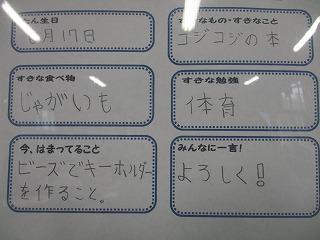 たん生日
月17日
すきなもの・すきなこと
コジコジの本
すきな食べ物
じゃがいも
すきな勉強
体育
今、はまってること
ビーズでキーホルダー
を作ること。
みんなに一言!
よろしく!